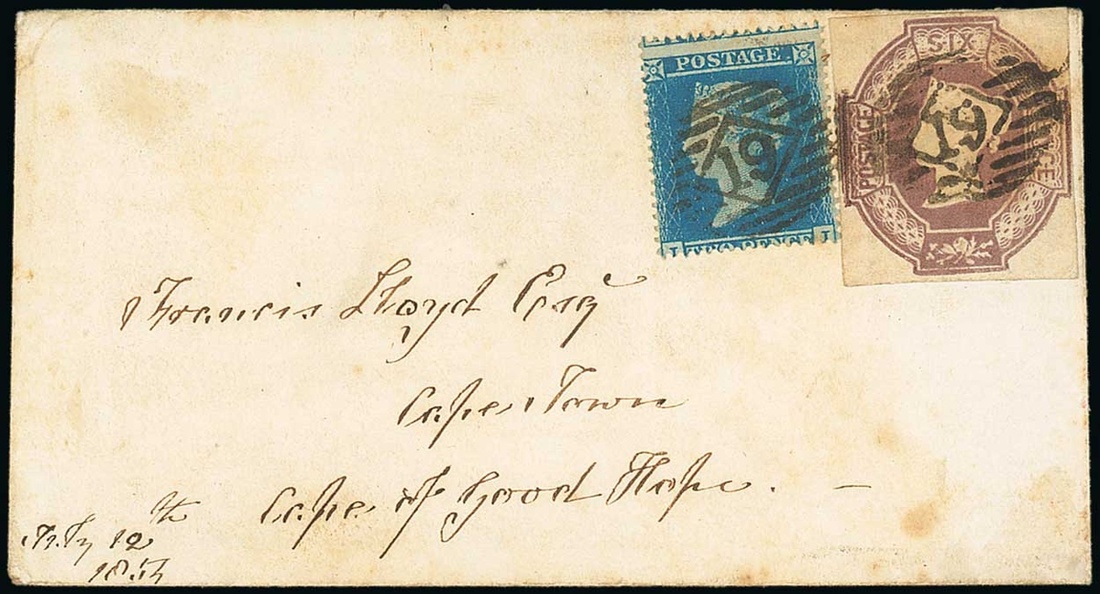 POSTAGE
19
I TWO PENCE I
SIX
POSTAGE
PENCE
19
Francis Lloyd Esqr
Cape Town
Cape of Good Hope. —
July 12th